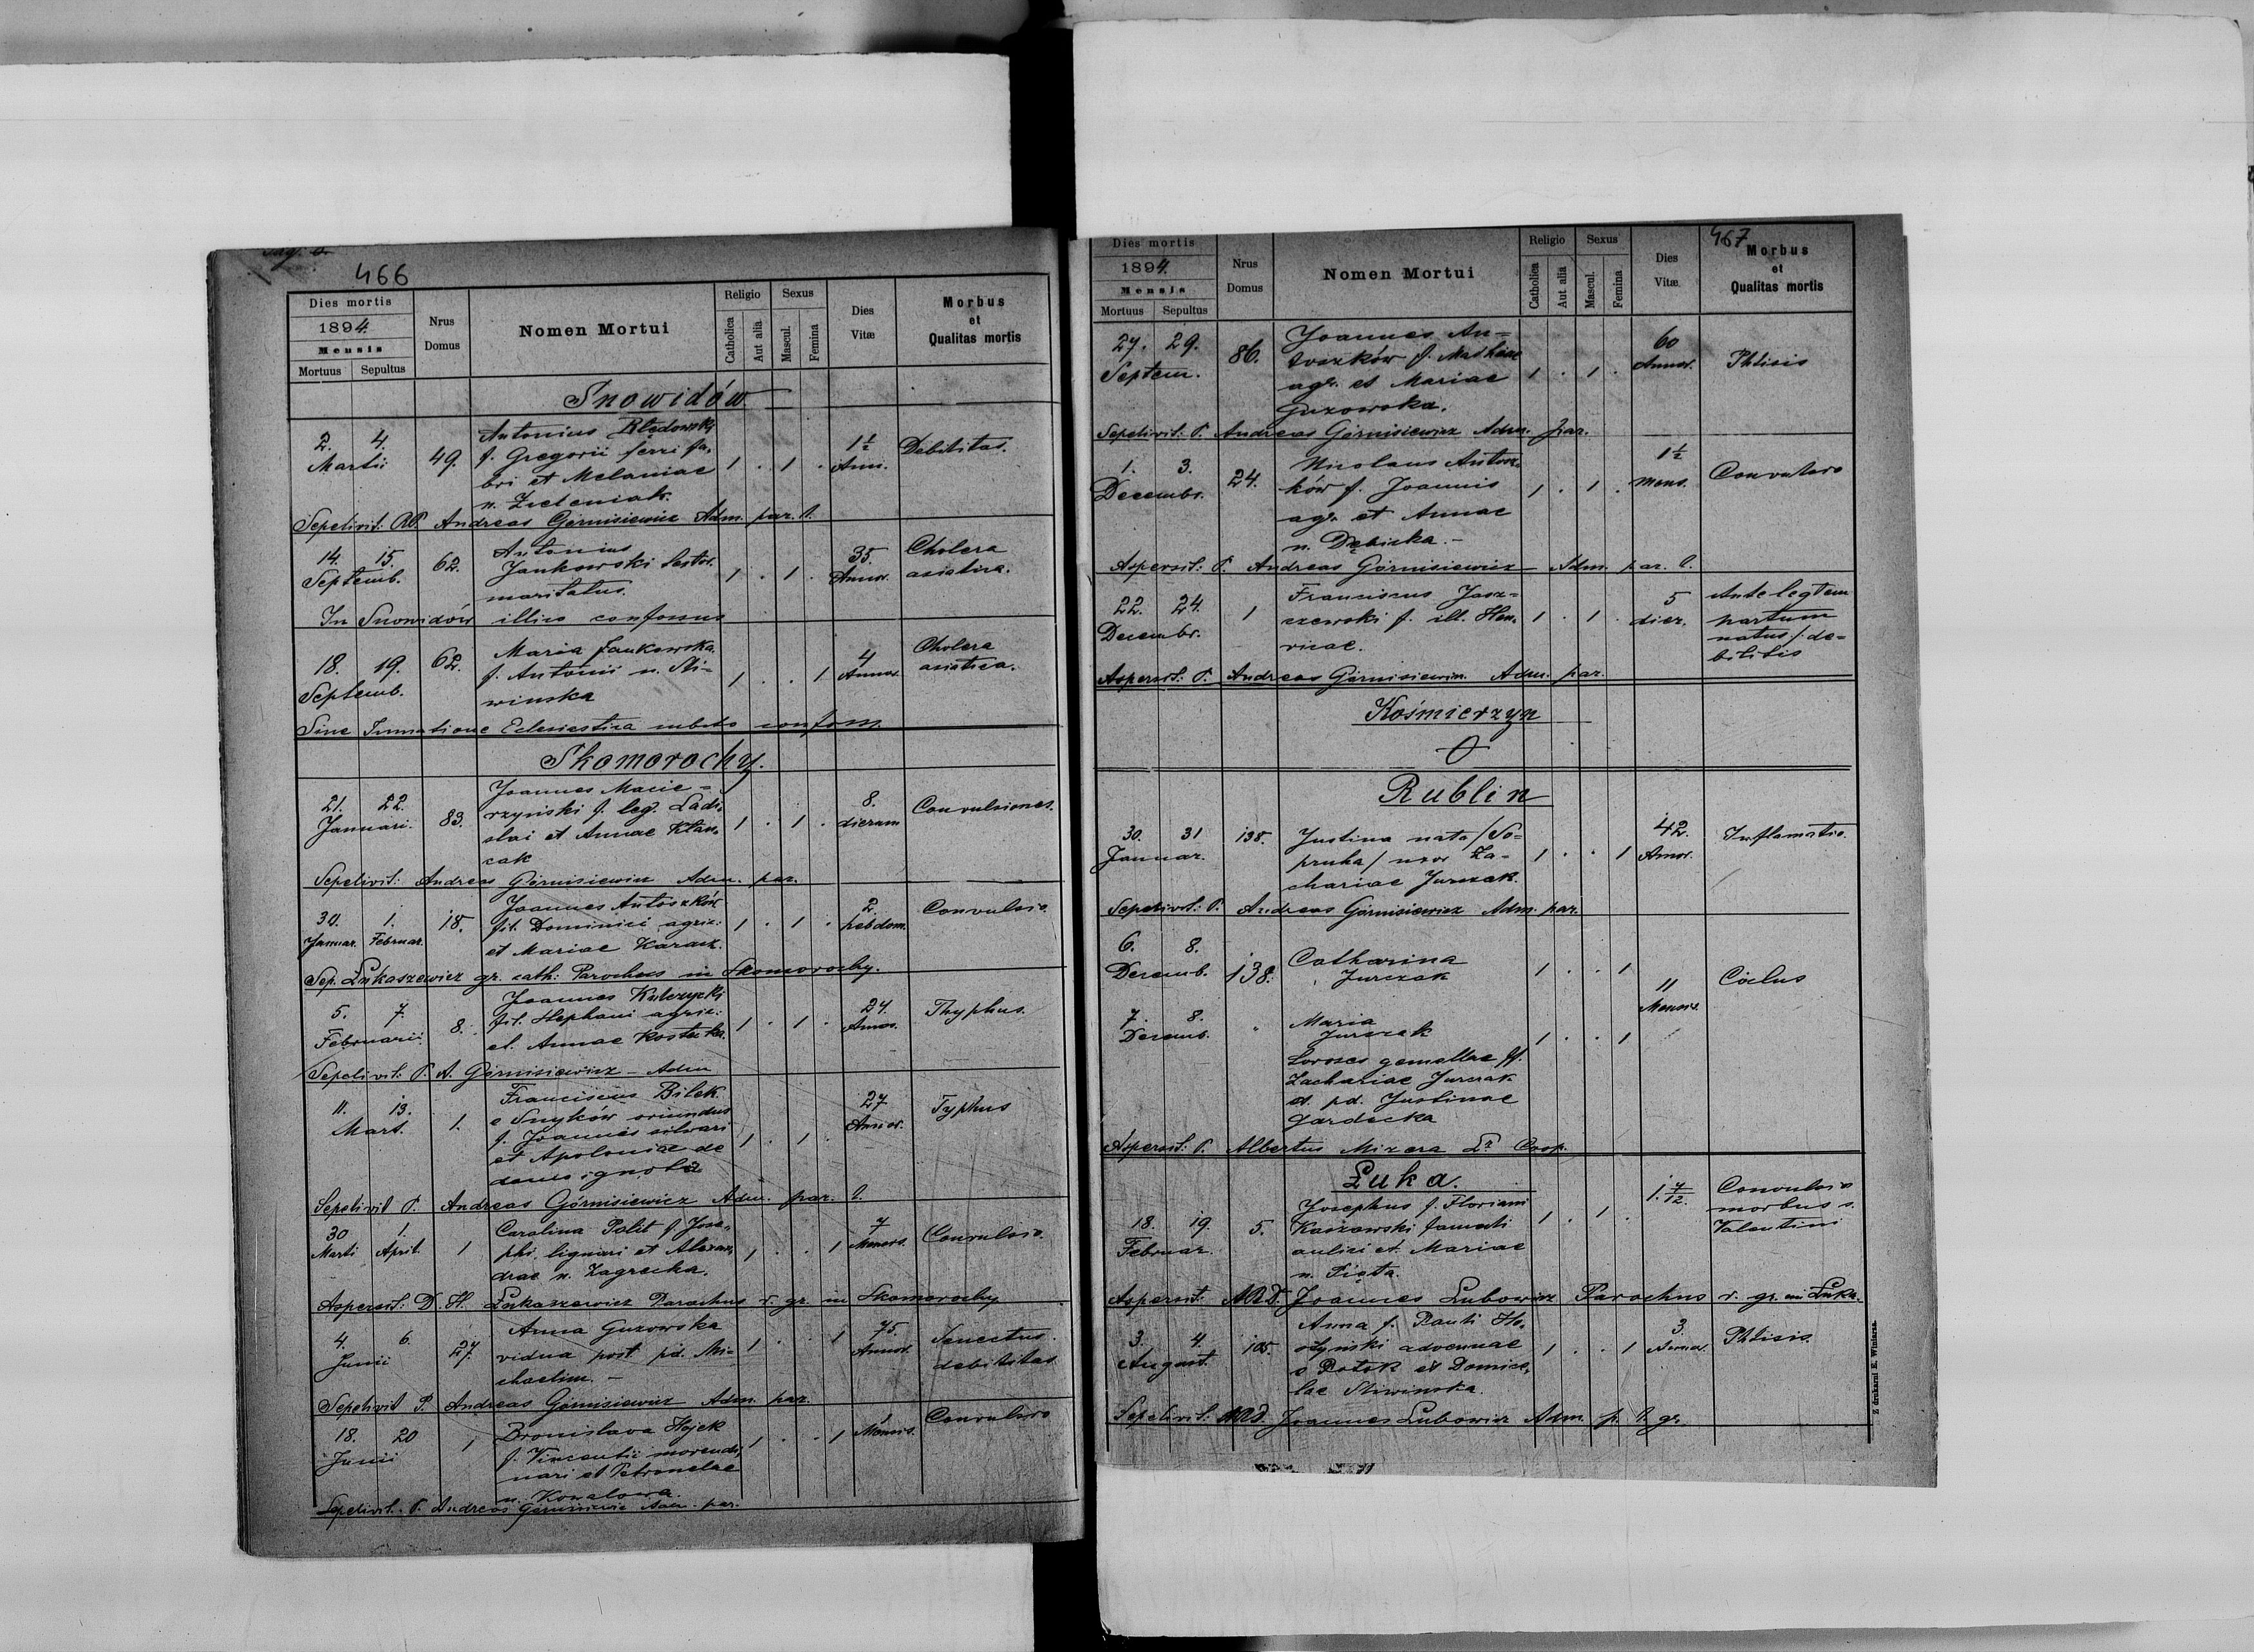 466
Dies mortis
1894.
Mensis
Mortuus Sepultus
Nrus Domus
Nomen Mortui
Religio
Catholica
Aut alia
Sexus
Mascul.
Femina
Dies Vitæ
Morbus et Qualitas mortis
Snowidów
2. 4. Martii 49. Antonius Błędowski 1 . 1 . 1½ Anni. Debilitas.
f. Gregorii ferri fa-
bri et Melaniae
n. Zieleniak.
Sepelivit: P. Andreas Górnisiewicz Adm. par. l.
14. 15. Septemb. 62. Antonius 1 . 1 . 35. Annor. Cholera asiatica.
Jankowski
maritatus.
In Snowidów illico
18. 19. Septemb. 62. Maria Jankowska 1 . . 1 4 Annor. Cholera asiatica.
f. Antonii n. Śli-
winska
Sine
Skomorochy.
21. 22. Januari. 83. Joannes Macie- 1 . 1 . 8. dierum Convulsiones.
rzyński f. leg. Ladi-
slai et Annae
Sepelivit: Andreas Górnisiewicz Adm. par.
30. 1. Januar. Februar. 18. Joannes Antoszków 1 . 1 . 2. hebdom. Convulsio
fil. Dominici agric:
et Mariae Karasz.
Sep. Łukaszewicz gr. cath: Parochus in Skomorochy.
5. 7. Februarii 8. Joannes Kulczycki 1 . 1 . 24. Annor. Thyphus.
fil. Stephani agric:
et Annae
Sepelivit: P. A. Górnisiewicz - Adm
11. 13. Mart. 1. Franciscus Bilek 1 . 1 . 27 Annor. Typhus
e Snyków oriundus
f. Joannis silvari
et Apoloniae de
domo ignota
Sepelivit P. Andreas Górnisiewicz Adm. par. l.
30 1. Marti April. 1 Carolina Polit f. Jose- 1 . . 1 7 Mensis. Convulsio.
phi lignari et Alexan-
drae n. Zagrecka.
Aspersit: D. H. Łukaszewicz Parochus r. gr. in Skomorochy
4. 6. Junii 27. Anna Guzowska 1 . . 1 75. Annor. Senectus. debilitas
vidua post pd. Mi-
chaelim. -
Sepelivit P. Andreas Górnisiewicz Adm. par.
18. 20 Junii 1 Bronislava Hejek 1 . . 1 Mensis. Convulsio
f. Vincentii
nari et Petronelae
n. Kowalowa.
Sepelivit. P. Andreas Górnisiewicz Adm. par.
467
Dies mortis
1894.
Mensis
Mortuus Sepultus
Nrus Domus
Nomen Mortui
Religio
Catholica
Aut alia
Sexus
Mascul.
Femina
Dies Vitæ
Morbus et Qualitas mortis
27. 29. Septem. 86. Joannes An- 1 . 1 . 60 Annor. Phtisis
toszków f. Mathiae
agr. et Mariae
Guzowska.
Sepelivit: P. Andreas Górnisiewicz Adm. par.
1. 3. Decembr. 24. Nicolaus Antosz- 1 . 1 . 1½ mens. Convulsio
ków f. Joannis
agr. et Annae
n. Dębicka. -
Aspersit: P. Andreas Górnisiewicz Adm. par. l.
22. 24. Decembr. 1 Franciscus Jasz- 1 . 1 . 5 dier. Ante legtem
czewski f. ill. Hen- partum
ricae. natus / de-
bilitis
Aspersit: P. Andreas Górnisiewicz. Adm. par.
Kośmierzyn
Rublin
30. 31 Januar. 138. Justina nata / So- 1 . . 1 42. Annor. Inflamatio.
pruha / uxor Za-
chariae Jurczak.
Sepelivit: P. Andreas Górnisiewicz Adm. par.
6. 8. Decemb. 138. Catharina 1 . . 1
Jurczak
11 Mensis
7. 8. Decemb. " Maria 1 . . 1
Jurczak
Sorores gemellae ff.
Zachariae Jurczak
et pd. Justinae
Gardecka
Aspersit: P. Albertus Mizera Lr. Coop.
Łuka.
18. 19. Februar. 5. Josephus f. Floriani 1 . 1 . 1. 7/12 Convulsio
Kaszowski famuli morbus s.
aulici et Mariae Valentini
n. Pięta.
Aspersit: ARD. Joannes Lubowicz Parochus r. gr. in Łuka.
3. 4. August. 105. Anna f. Pauli Ho- 1 . . 1 3. Annor. Phtisis.
łyński advenae
e Potok et Domice-
lae Śliwinska.
Sepelivit: ARD. Joannes Lubowicz Adm. p. r. gr.
Z drukarni E. Winiarza.